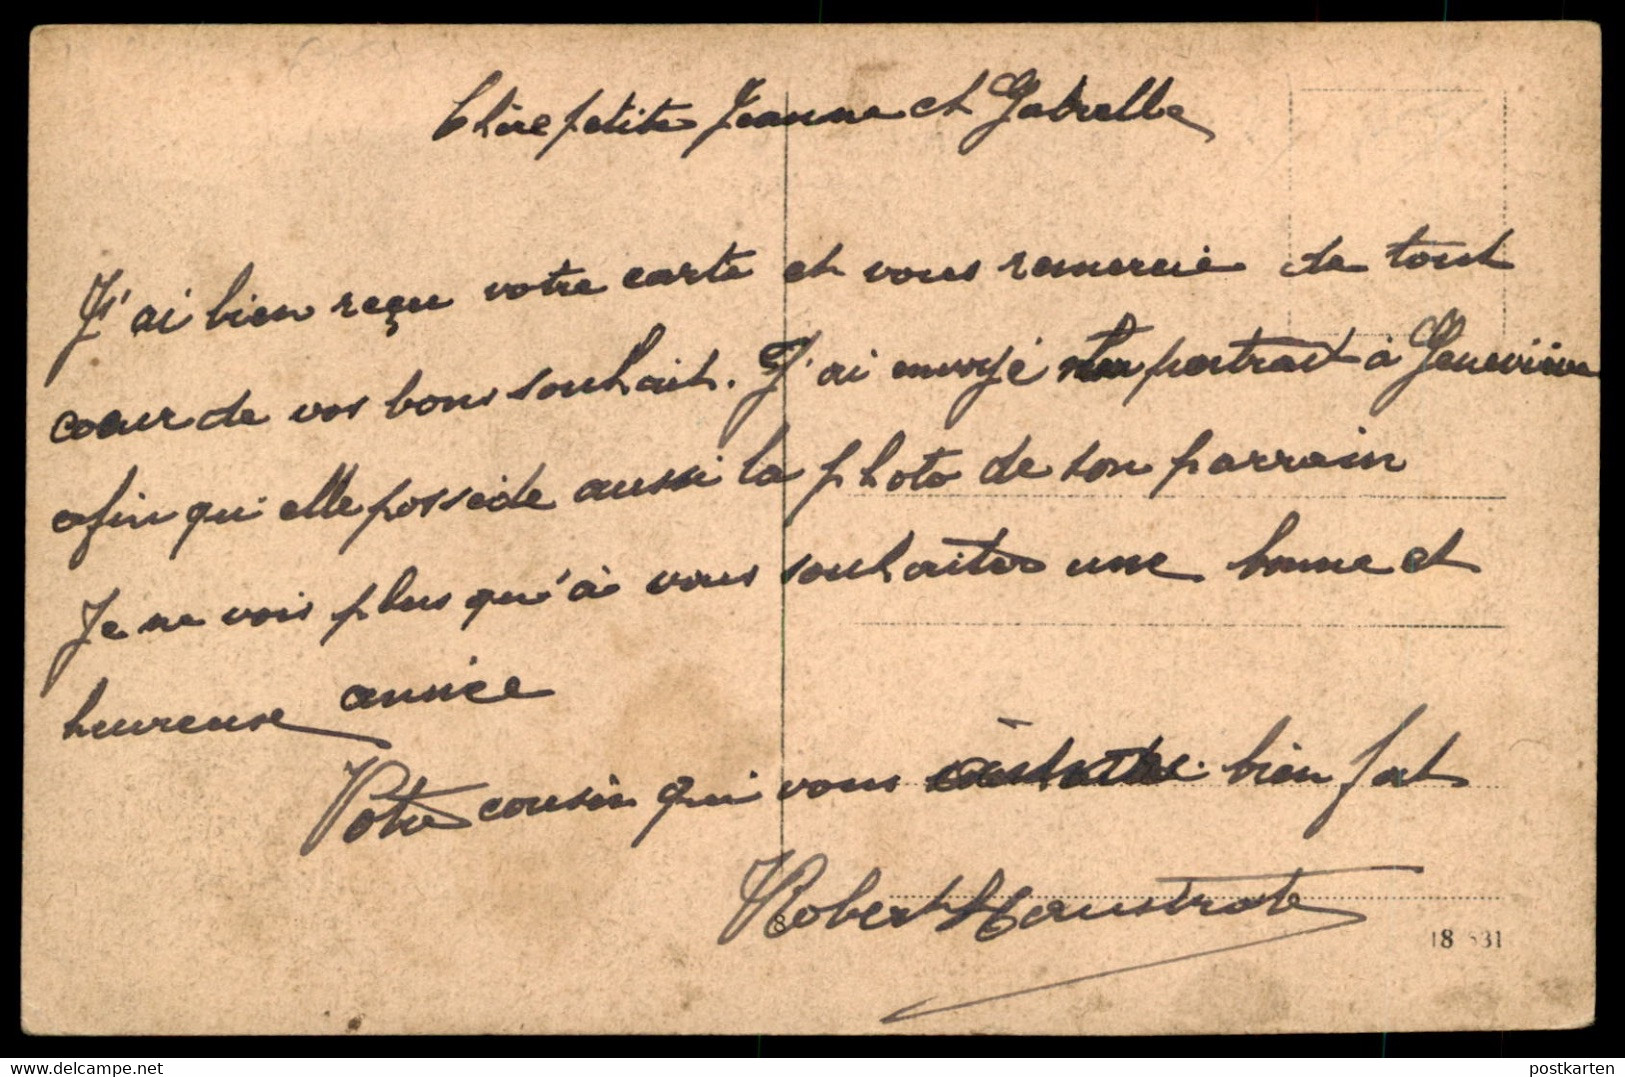 Chère petite Jeanne et Gabrelle
J'ai bien reçu votre carte et vous remercie de tout
coeur de vos bons souhait. J'ai envoyé mon portrait à Geneviève
afin qu'elle possède aussi la photo de son parrain
Je ne vois plus qu'à vous souhaiter une bonne et
heureuse année
Votre cousin qui vous bien fort
Robert Haustrate
18 531
www.delcampe.net
postkarten